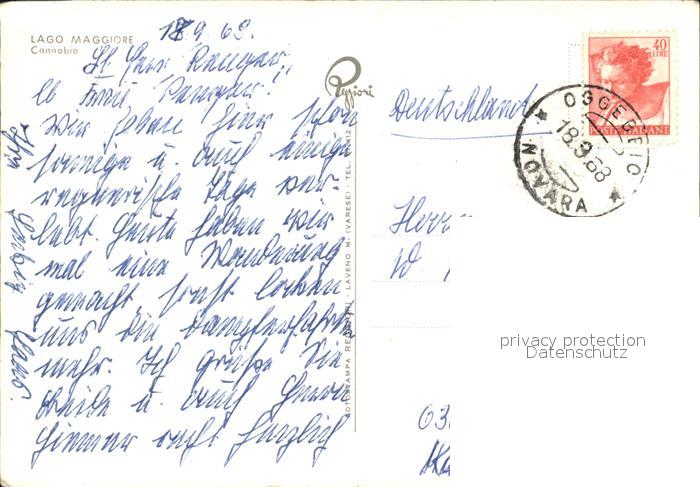 LAGO MAGGIORE
Cannobio
18.9.68.
Lb. Herr
lb Frau
Wir haben hier schon
sonnige u. auch einige
regnerische Tage ver-
lebt. Heute haben wir
mal eine Wanderung
gemacht sonst locken
uns die Dampferfahrten
mehr. Ich grüße Sie
beide u. auch Herrn
recht herzlich
Ihr
Reggiori
FOTOSTAMPA REGGIORI - LAVENO M. (VARESE) - TEL.
Deutschland
40
LIRE
POSTE ITALIANE
OGGEBBIO
18.9.68
NOVARA
Herr
W
privacy protection
Datenschutz
63